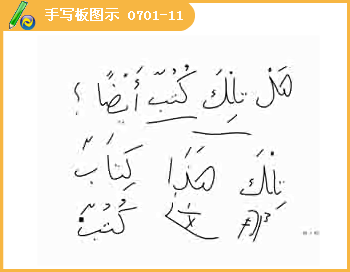 手写板图示 0701-11
هَلْ تِلْكَ كُتُبٌ أَيْضًا ؟
تِلْكَ هَذَا كِتَابٌ
كُتُبٌ